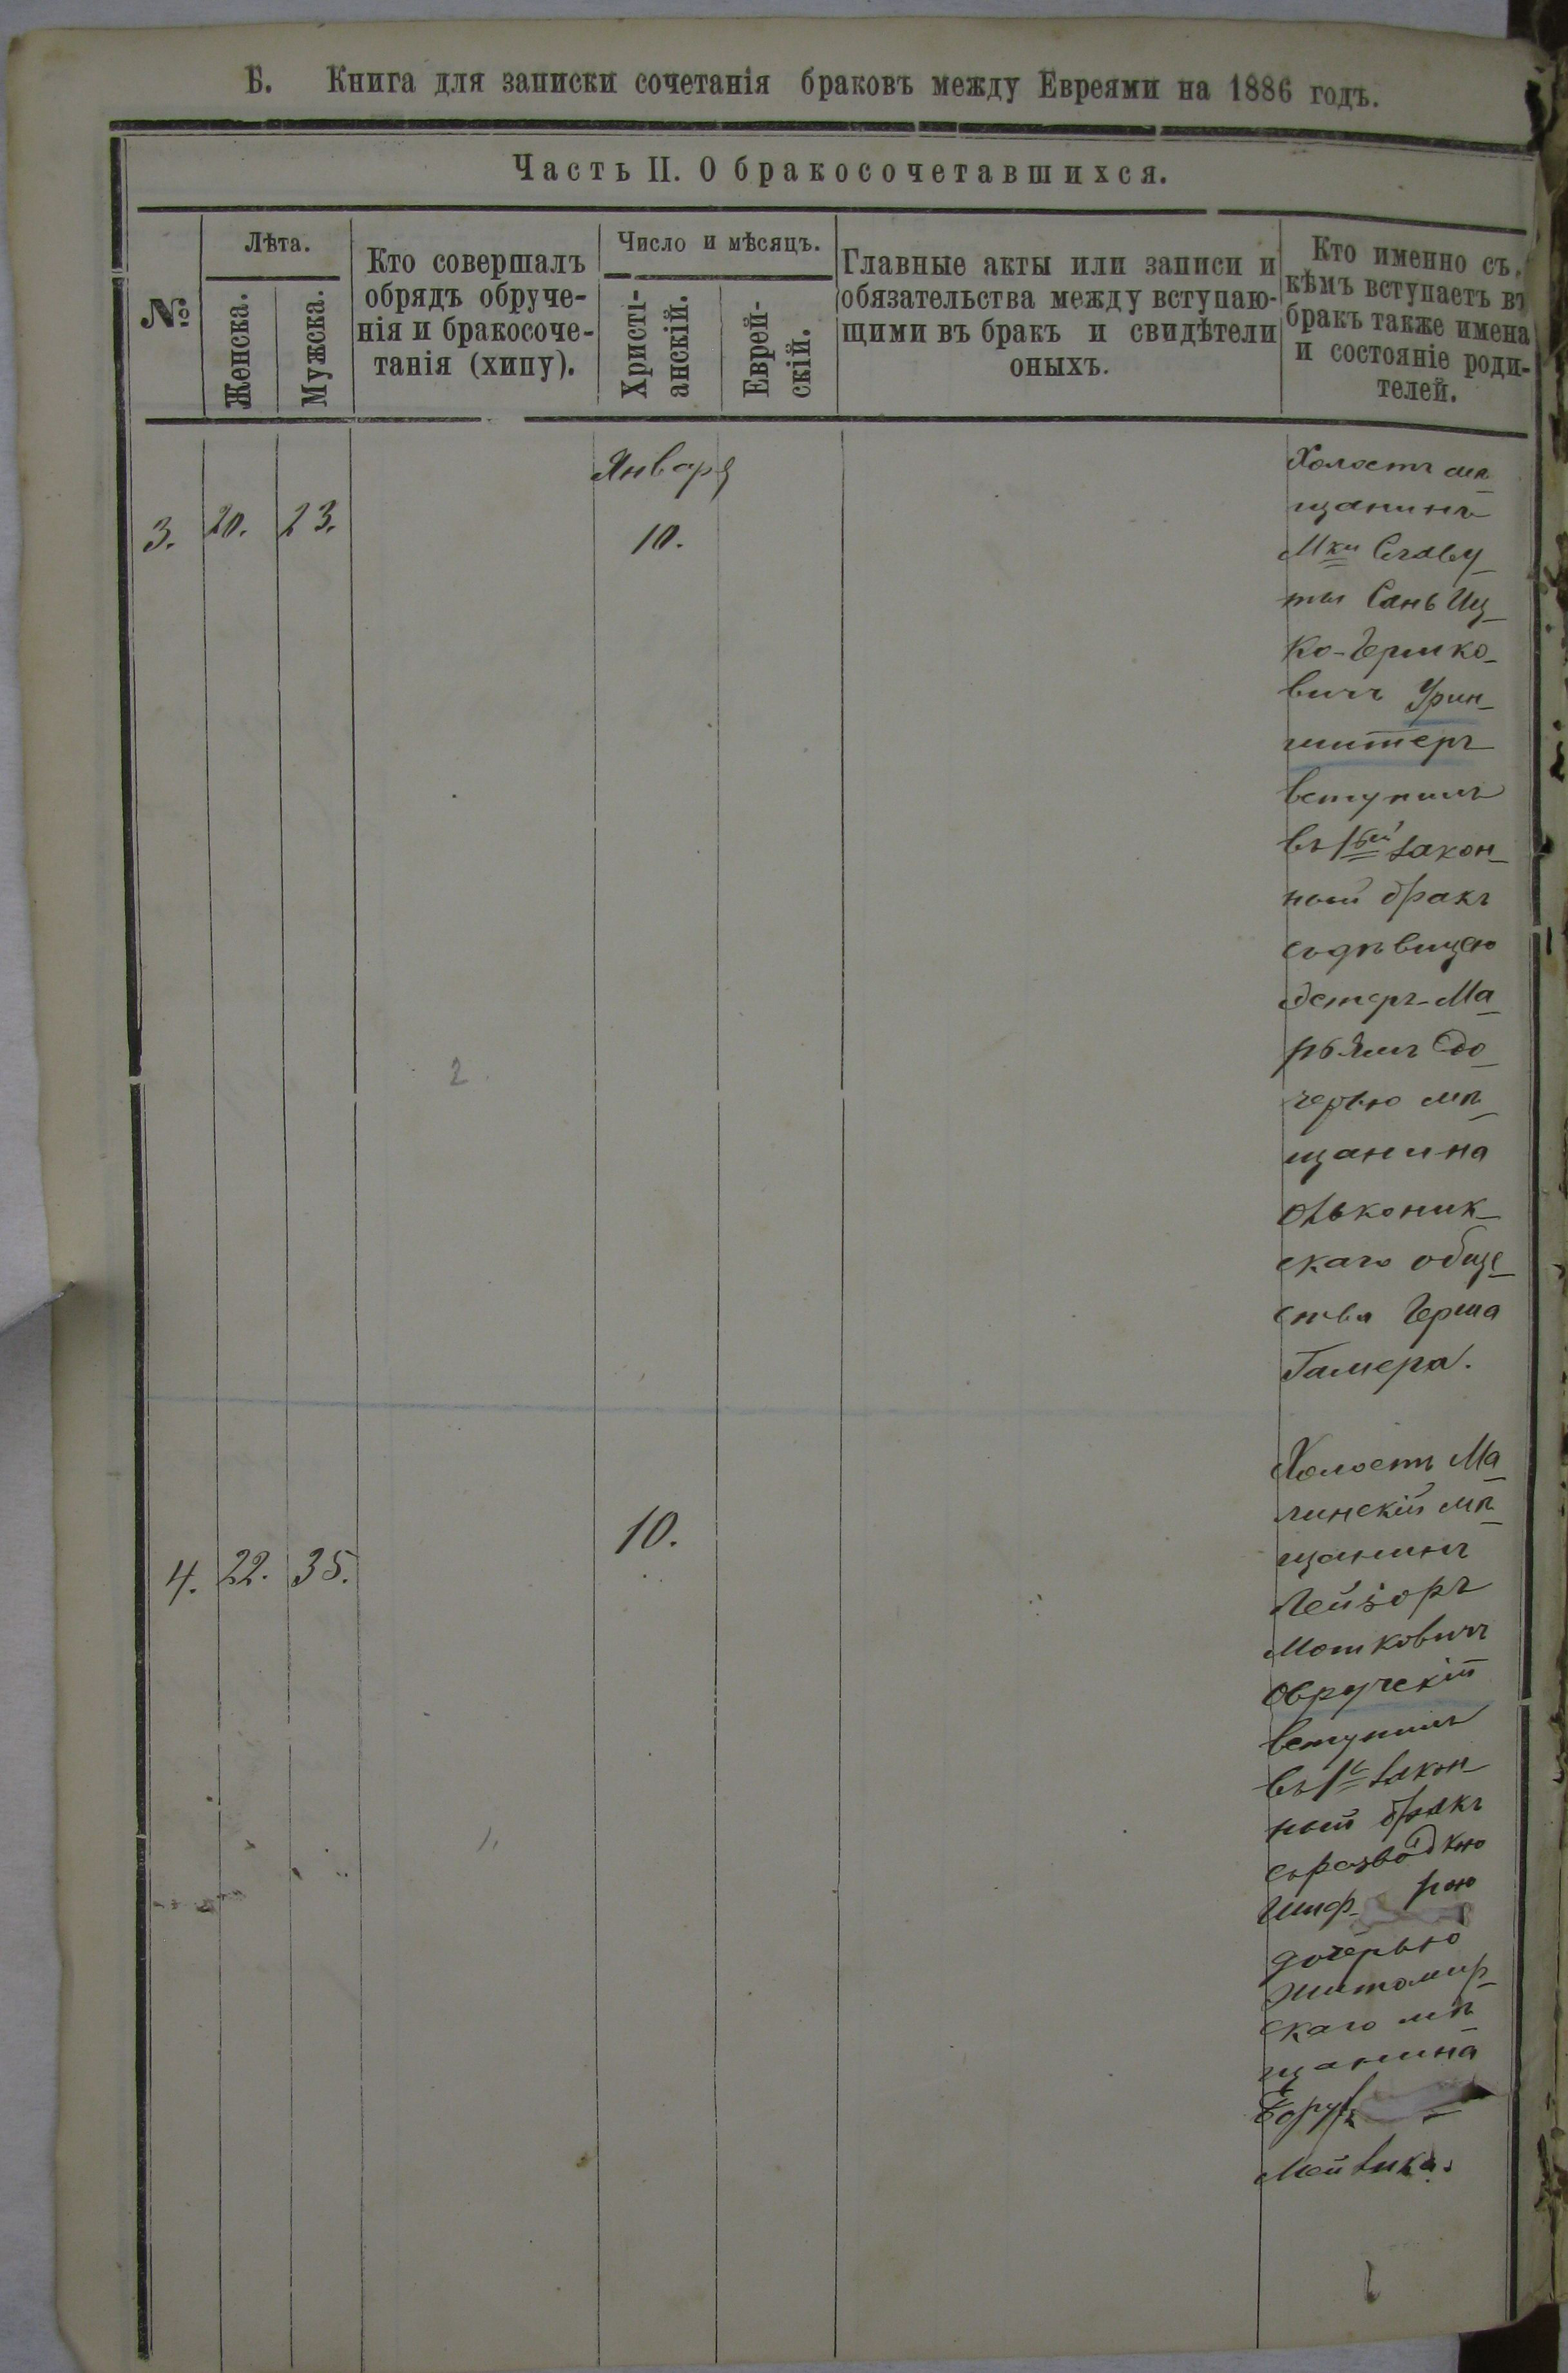 Б. Книга для записки сочетанія браковъ между Евреями на 1886 годъ.
Часть II. О бракосочетавшихся.
№
Лѣта.
Женска.
Мужска.
Кто совершалъ
обрядъ обруче-
нія и бракосоче-
танія (хипу).
Число и мѣсяцъ.
Христі-
анскій.
Еврей-
скій.
Главные акты или записи и
обязательства между вступаю-
щими въ бракъ и свидѣтели
оныхъ.
Кто именно съ
кѣмъ вступаетъ въ
бракъ также имена
и состояніе роди-
телей.
Января
3. 20. 23. 10.
Холостъ мѣ
щанинъ
Мки Славу
ты
ко-Гершко-
вичъ Грин-
штеръ
вступилъ
въ 1ый закон-
ный бракъ
съ дѣвицею
Эстеръ-Ма
рьямъ до
черью мѣ
щанина
скаго обще
ства Герша
Гамера.
2
4. 22. 35. 10.
Холостъ Ма
линскій мѣ
щанинъ
Лейзоръ
Мошковичъ
Овручскій
вступилъ
въ 1й закон
ный бракъ
съ разводкою
Шиф- рою
дочерью
Житомир-
скаго мѣ
щанина
Мейзика.